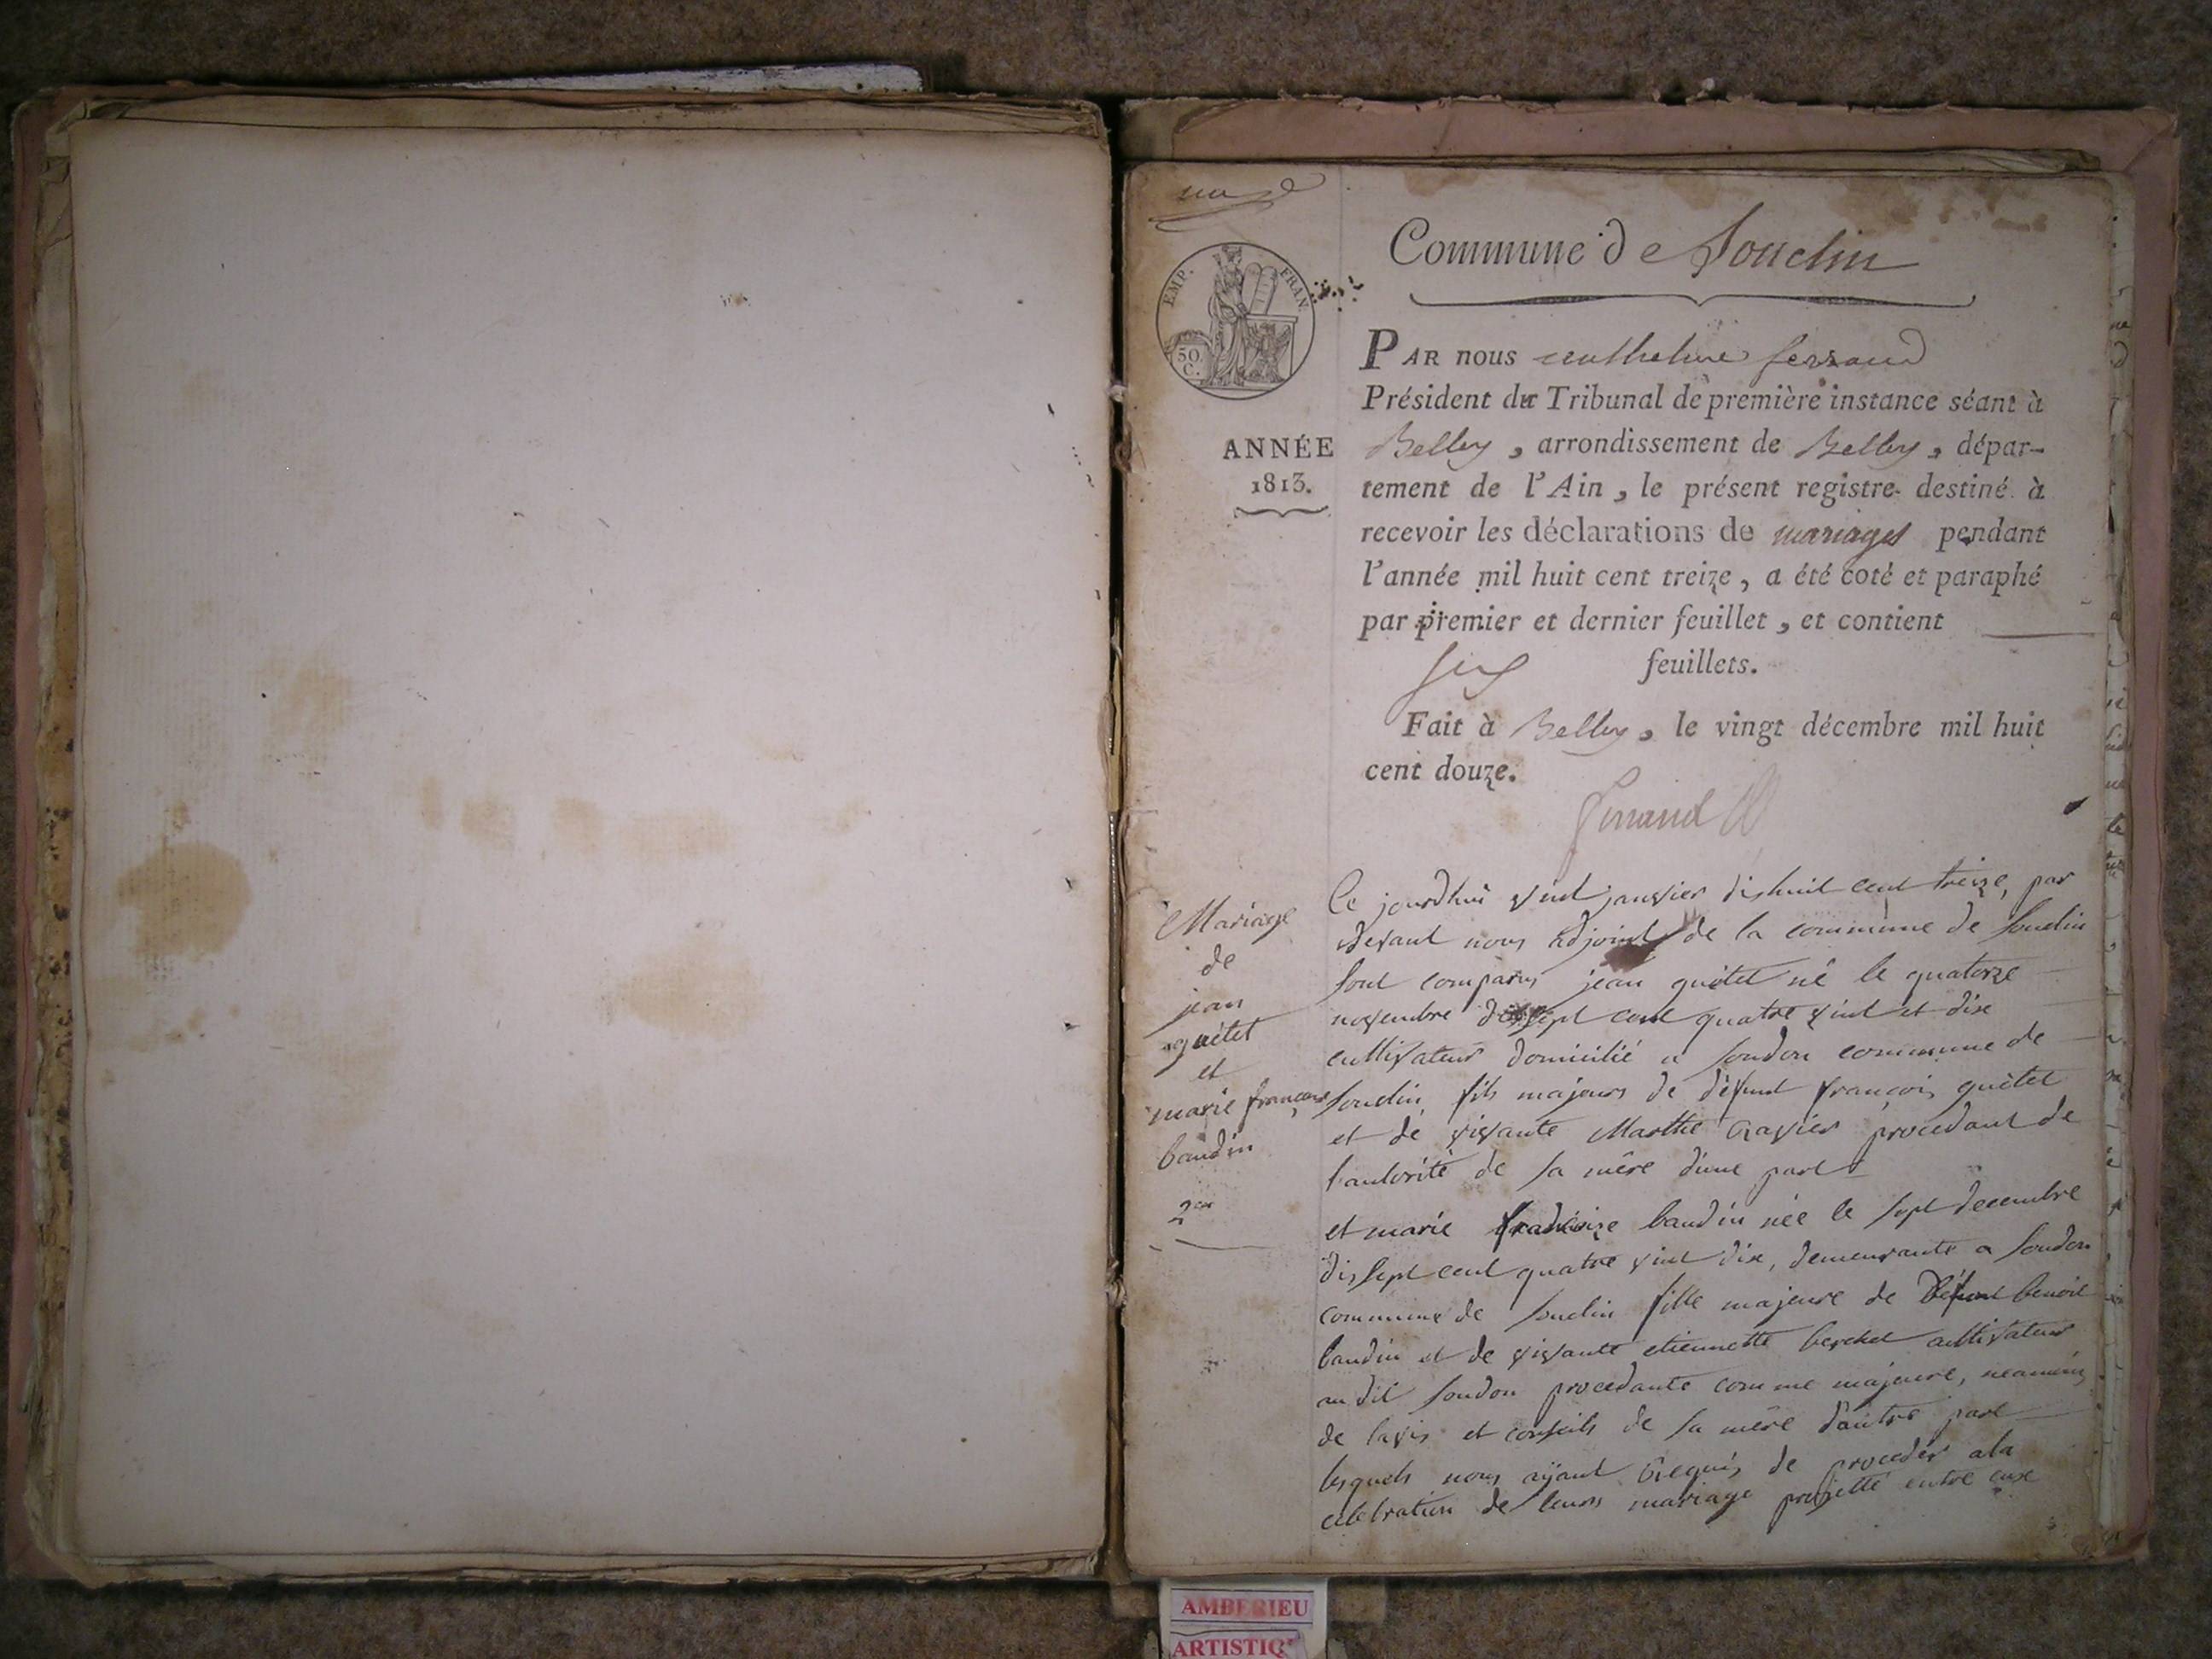 Commune de Souclin
EMP. FRAN.
50. C.
PAR nous anthelme ferrand
Président du Tribunal de première instance séant à
ANNÉE
1813.
Belley, arrondissement de Belley, dépar-
tement de l'Ain, le présent registre destiné à
recevoir les déclarations de mariages pendant
l'année mil huit cent treize, a été coté et paraphé
par premier et dernier feuillet, et contient
six feuillets.
Fait à Belley, le vingt décembre mil huit
cent douze.
Ferrand
Mariage
de
jean
quétet
et
marie françoise
baudin
Ce jourdhui vint janvier dishuit cent treize, par
devant nous adjoint de la commune de Souclin
sont comparus jean quétet né le quatorze
novembre dissept cent quatre vint et dixe
cultivateur domicilié a soudon commune de
Souclin, fils majeurs de défunt françois quétet
et de vivante Marthe Ravier procedant de
l'autorité de sa mére dune part
et marie françoize baudin née le sept decembre
dissept cent quatre vint dixe, demeurante a Soudon
commune de souclin fille majeure de Défunt benoit
baudin et de vivante etiennette berchet cultivateur
au dit soudon procedante comme majeure, neamoins
de lavis et conseils de sa mére dautre part
lesquels nous ayant Requis de proceder ala
celebration de leurs mariage projetté entre euxe
AMBERIEU
ARTISTIQ